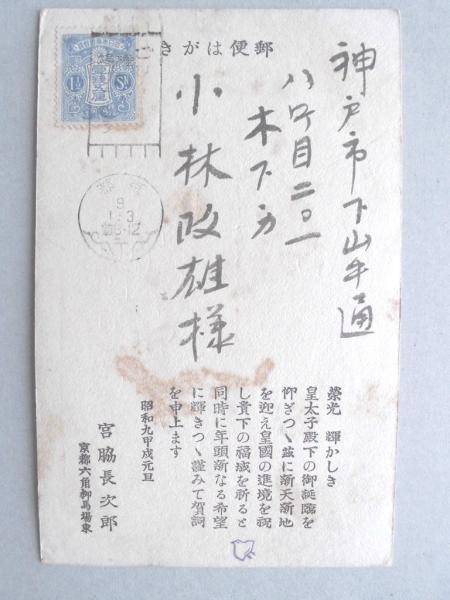 郵便はがき
神戸市下山手通
八丁目二〇一
木下方
小林政雄様
1½ Sn
9
1.3
榮光 輝かしき
皇太子殿下の御誕臨を
仰ぎつゝ茲に新天新地
を迎え皇國の進境を祝
し貴下の福祉を祈ると
同時に年頭新なる希望
に輝きつゝ謹みて賀詞
を申上ます
昭和九甲戌元旦
宮脇長次郎
京都六角柳馬場東